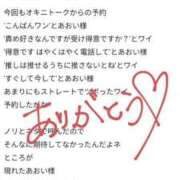 今回もオキニトークからの予約
'こんばんワン'とあおい様
'責め好きなんですが受け得意ですか？'とワイ
'得意です はやくはやく電話して'とあおい様
'推しは推せるうちに推さないとね'とワイ
'すぐして今して'とあおい様
あまりにもストレートで
予約したが
ありがとう♡
ノリとネタで呼んだので
そんなに期待してなかったんだよネ
ところが
現れたあおい様